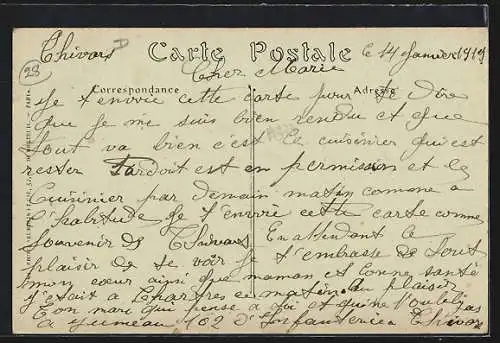 Thivars
28
Carte Postale
le 14 Janvier 1919
Cher Marie
Correspondance
Adresse
Je t'envoie cette carte pour te dire
que je me suis bien rendu et que
tout va bien c'est le cuisinier qui est
rester Tardoit est en permission et le
Cuisinier par demain matin comme a
l'habitude Je t'envoie cette carte comme
souvenir de Thivars En attendant le
plaisir de se voir Je t'embrasse de tout
mon cœur ainsi que maman et bonne santé
j'etait a Chartres ce matin. Au plaisir
Ton mari qui pense a toi et qui ne t'oublie pas
a Jumeau 102 d'Infanterie Thivars